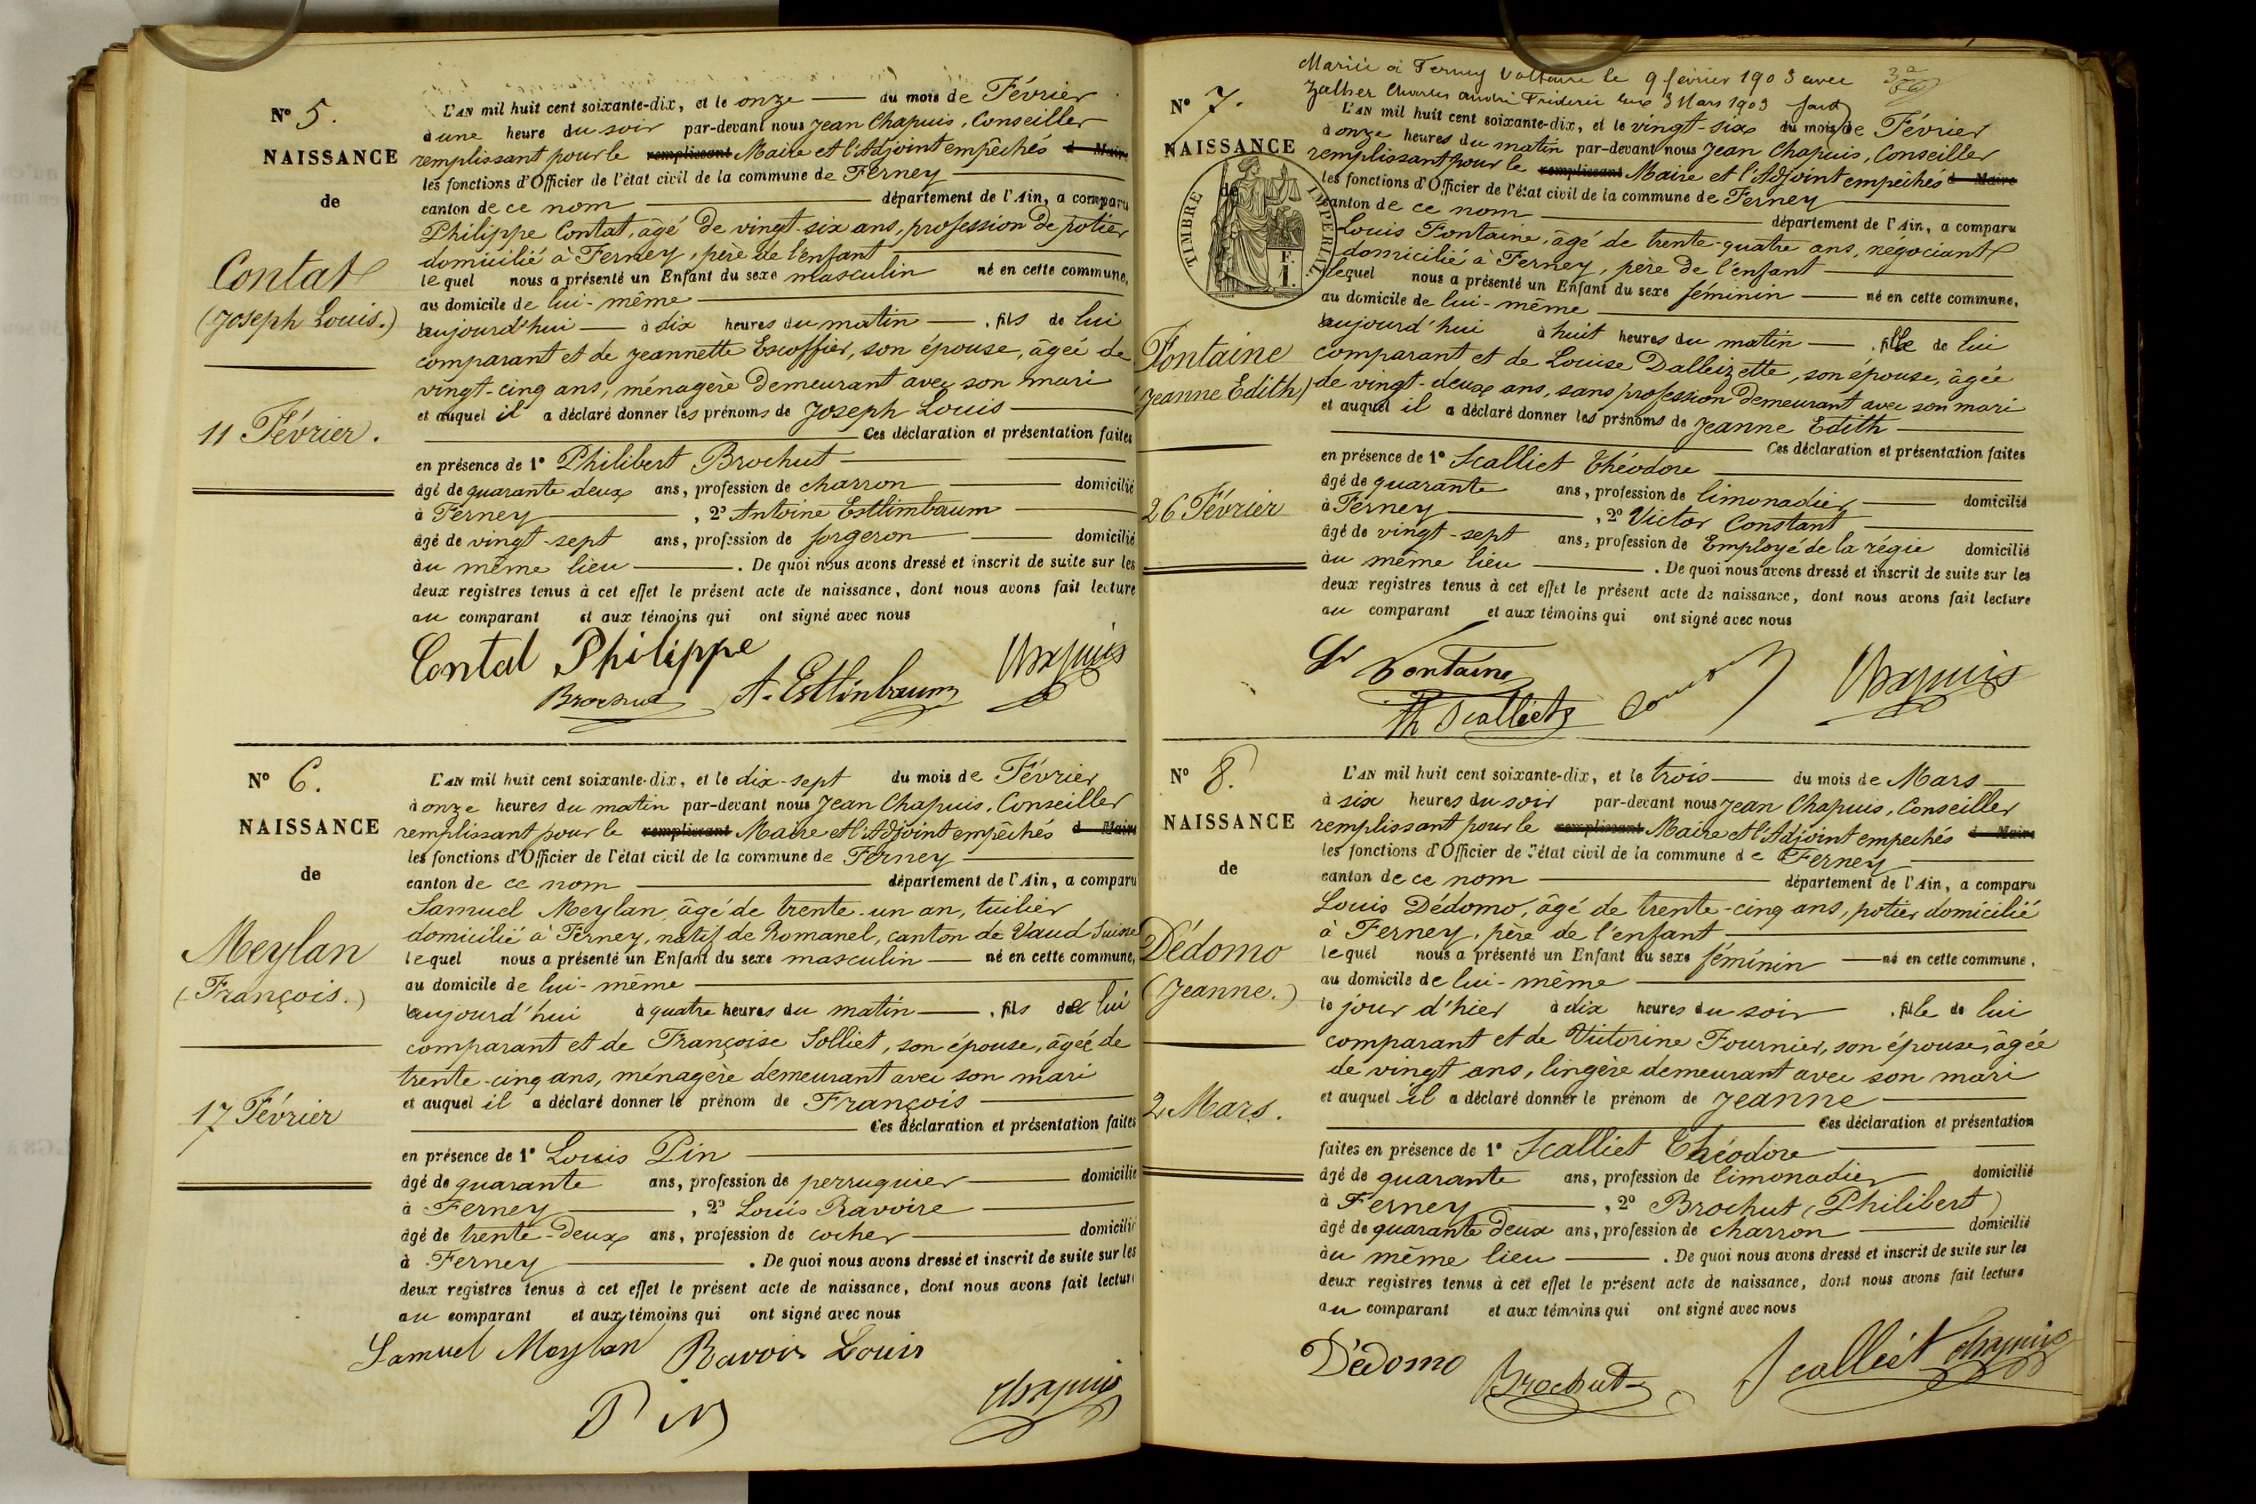 Nº 5.
NAISSANCE
de
Contat
(Joseph Louis.)
11 Février.
L'AN mil huit cent soixante-dix, et le onze du mois de Février
à une heure du soir par-devant nous Jean Chapuis, Conseiller
remplissant pour le remplissant Maire et l'Adjoint empêchés d Maire
les fonctions d'Officier de l'état civil de la commune de Ferney
canton de ce nom département de l'Ain, a comparu
Philippe Contat, âgé de vingt-six ans, profession de potier
domicilié à Ferney, père de l'enfant
lequel nous a présenté un Enfant du sexe masculin né en cette commune,
au domicile de lui-même
aujourd'hui à dix heures du matin, fils de lui
comparant et de Jeannette Escoffier, son épouse, âgée de
vingt-cinq ans, ménagère demeurant avec son mari
et auquel il a déclaré donner les prénoms de Joseph Louis
Ces déclaration et présentation faites
en présence de 1º Philibert Brochut
âgé de quarante deux ans, profession de charron domicilié
à Ferney, 2º Antoine Estlimbaum
âgé de vingt-sept ans, profession de forgeron domicilié
au même lieu. De quoi nous avons dressé et inscrit de suite sur les
deux registres tenus à cet effet le présent acte de naissance, dont nous avons fait lecture
au comparant et aux témoins qui ont signé avec nous
Contat Philippe Chapuis
Brochut A. Estlinbaum
Nº 6.
NAISSANCE
de
Meylan
(François.)
17 Février
L'AN mil huit cent soixante-dix, et le dix-sept du mois de Février
à onze heures du matin par-devant nous Jean Chapuis, Conseiller
remplissant pour le remplissant Maire et l'Adjoint empêchés d Maire
les fonctions d'Officier de l'état civil de la commune de Ferney
canton de ce nom département de l'Ain, a comparu
Samuel Meylan, âgé de trente-un an, tuilier
domicilié à Ferney, natif de Romanel, canton de Vaud Suisse
lequel nous a présenté un Enfant du sexe masculin né en cette commune,
au domicile de lui-même
aujourd'hui à quatre heures du matin, fils de lui
comparant et de Françoise Solliet, son épouse, âgée de
trente-cinq ans, ménagère demeurant avec son mari
et auquel il a déclaré donner le prénom de François
Ces déclaration et présentation faites
en présence de 1º Louis Pin
âgé de quarante ans, profession de perruquier domicilié
à Ferney, 2º Louis Ravoire
âgé de trente-deux ans, profession de cocher domicilié
à Ferney. De quoi nous avons dressé et inscrit de suite sur les
deux registres tenus à cet effet le présent acte de naissance, dont nous avons fait lecture
au comparant et aux témoins qui ont signé avec nous
Samuel Meylan Ravoir Louis
Pin Chapuis
Mariée à Ferney Voltaire le 9 février 1903 avec
Zalher Charles André Fréderic 3 Mars 1903
Nº 7.
NAISSANCE
de
TIMBRE IMPERIAL
F.
1.
Fontaine
(Jeanne Edith)
26 Février
L'AN mil huit cent soixante-dix, et le vingt-six du mois de Février
à onze heures du matin par-devant nous Jean Chapuis, Conseiller
remplissant pour le remplissant Maire et l'Adjoint empêchés d Maire
les fonctions d'Officier de l'état civil de la commune de Ferney
canton de ce nom département de l'Ain, a comparu
Louis Fontaine, âgé de trente-quatre ans, négociant
domicilié à Ferney, père de l'enfant
lequel nous a présenté un Enfant du sexe féminin né en cette commune,
au domicile de lui-même
aujourd'hui à huit heures du matin, fille de lui
comparant et de Louise Dalleizette, son épouse, âgée
de vingt-deux ans, sans profession demeurant avec son mari
et auquel il a déclaré donner les prénoms de Jeanne Edith
Ces déclaration et présentation faites
en présence de 1º Scalliet Théodore
âgé de quarante ans, profession de limonadier domicilié
à Ferney, 2º Victor Constant
âgé de vingt-sept ans, profession de Employé de la régie domicilié
au même lieu. De quoi nous avons dressé et inscrit de suite sur les
deux registres tenus à cet effet le présent acte de naissance, dont nous avons fait lecture
au comparant et aux témoins qui ont signé avec nous
Ls Fontaine Chapuis
Th Scalliet
Nº 8.
NAISSANCE
de
Dédomo
(Jeanne.)
2 Mars.
L'AN mil huit cent soixante-dix, et le trois du mois de Mars
à six heures du soir par-devant nous Jean Chapuis, Conseiller
remplissant pour le remplissant Maire et l'Adjoint empechés d Maire
les fonctions d'Officier de l'état civil de la commune de Ferney
canton de ce nom département de l'Ain, a comparu
Louis Dédomo, âgé de trente-cinq ans, potier domicilié
à Ferney, père de l'enfant
lequel nous a présenté un Enfant du sexe féminin né en cette commune,
au domicile de lui-même
le jour d'hier à dix heures du soir, fille de lui
comparant et de Victorine Fournier, son épouse, âgée
de vingt ans, lingère demeurant avec son mari
et auquel il a déclaré donner le prénom de Jeanne
Ces déclaration et présentation
faites en présence de 1º Scalliet Théodore
âgé de quarante ans, profession de limonadier domicilié
à Ferney, 2º Brochut (Philibert)
âgé de quarante deux ans, profession de charron domicilié
au même lieu. De quoi nous avons dressé et inscrit de suite sur les
deux registres tenus à cet effet le présent acte de naissance, dont nous avons fait lecture
au comparant et aux témoins qui ont signé avec nous
Dédomo Brochut Scalliet Chapuis